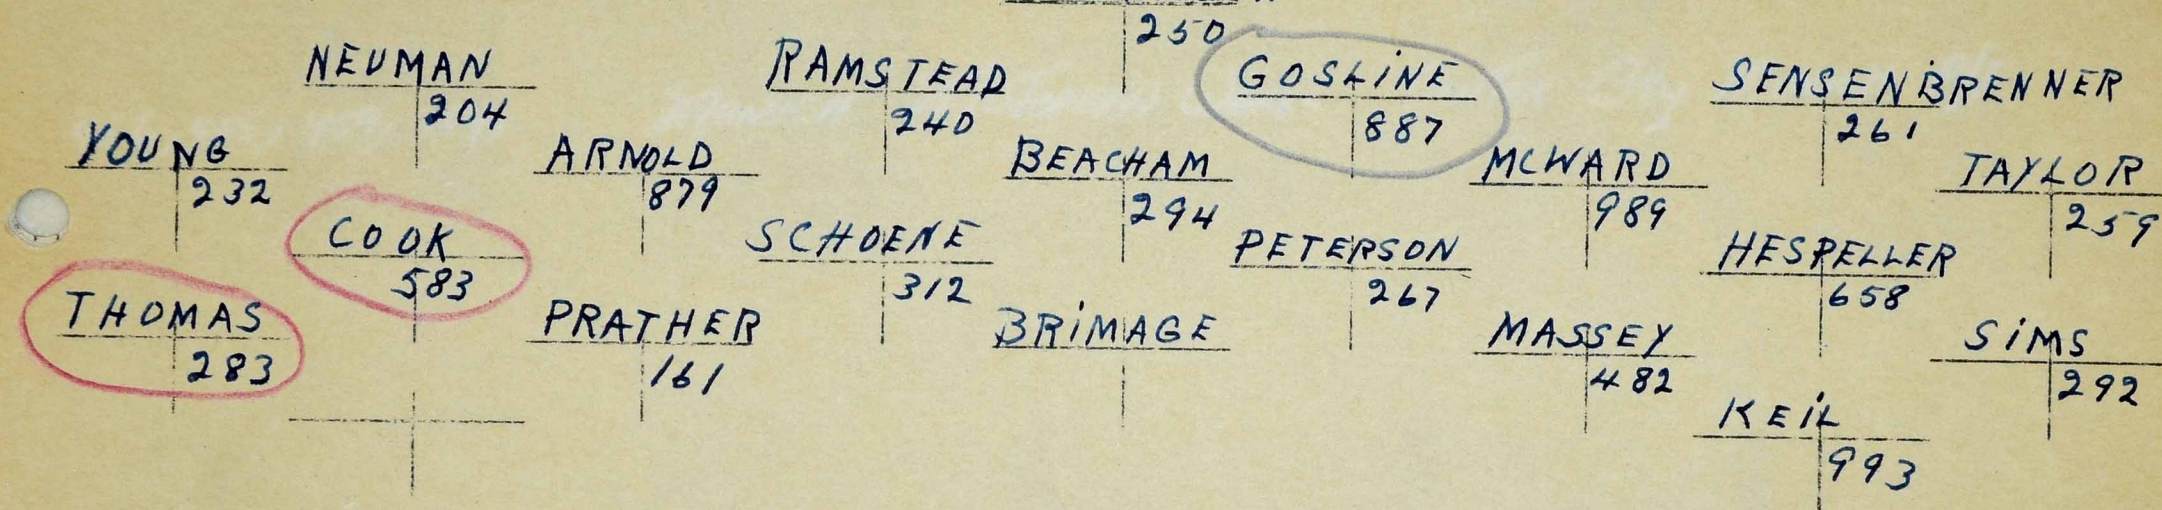 250
NEUMAN
204
RAMSTEAD
240
GOSLINE
887
SENSENBRENNER
261
YOUNG
232
ARNOLD
879
BEACHAM
294
MCWARD
989
TAYLOR
259
COOK
583
SCHOENE
312
PETERSON
267
HESPELLER
658
THOMAS
283
PRATHER
161
BRIMAGE
MASSEY
482
SIMS
292
KEIL
993